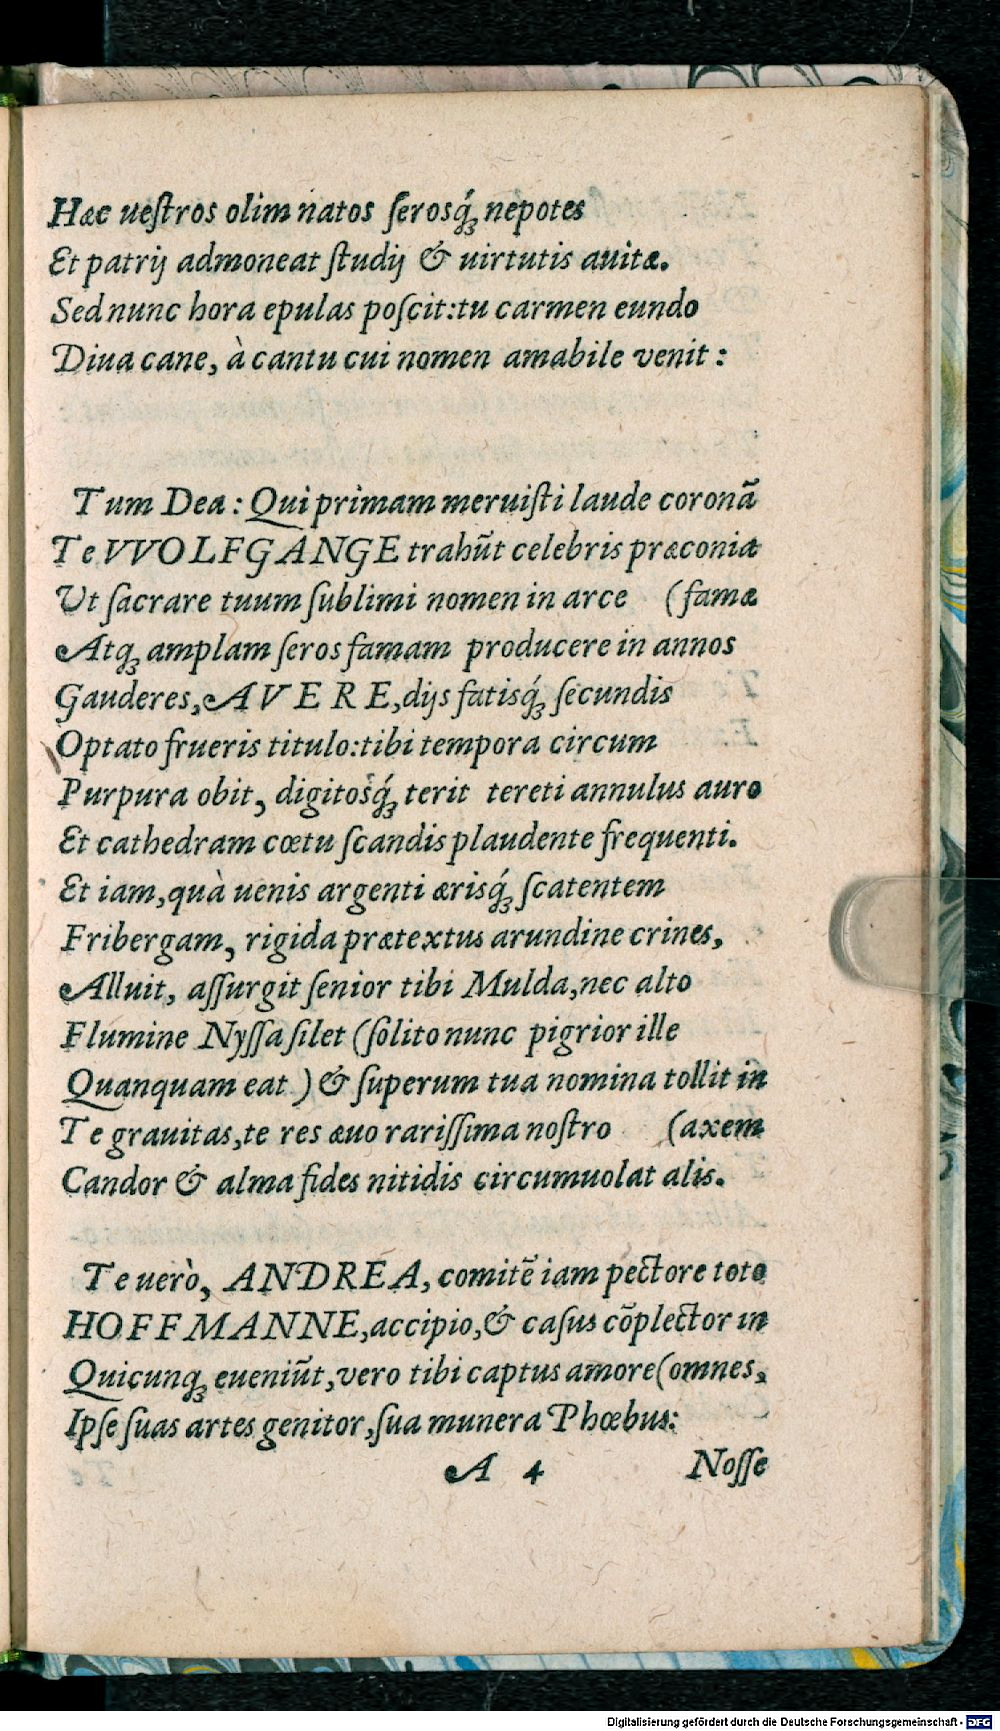 Hæc ueſtros olim natos ſerosq́ꝫ nepotes
Et patrij admoneat ſtudij & uirtutis auitæ.
Sed nunc hora epulas poſcit:tu carmen eundo
Diua cane, à cantu cui nomen amabile venit :
Tum Dea : Qui primam meruiſti laude coronã
Te VVOLFGANGE trahũt celebris præconia
Ut ſacrare tuum ſublimi nomen in arce (famæ
Atqꝫ amplam ſeros famam producere in annos
Gauderes, AVERE, dijs fatisq́ꝫ ſecundis
Optato frueris titulo:tibi tempora circum
Purpura obit, digitosq́ꝫ terit tereti annulus auro
Et cathedram cœtu ſcandis plaudente frequenti.
Et iam,quà uenis argenti ærisq́ꝫ ſcatentem
Fribergam, rigida prætextus arundine crines,
Alluit, aſſurgit ſenior tibi Mulda,nec alto
Flumine Nyſſa ſilet (ſolito nunc pigrior ille
Quanquam eat ) & ſuperum tua nomina tollit in
Te grauitas,te res æuo rariſſima noſtro (axem
Candor & alma fides nitidis circumuolat alis.
Te uerò, ANDREA, comitẽ iam pectore toto
HOFFMANNE,accipio,& caſus cõplector in
Quicunqꝫ eueniũt,vero tibi captus amore(omnes,
Ipſe ſuas artes genitor,ſua munera Phœbus:
A 4 Noſſe
Digitalisierung gefördert durch die Deutsche Forschungsgemeinschaft - DFG